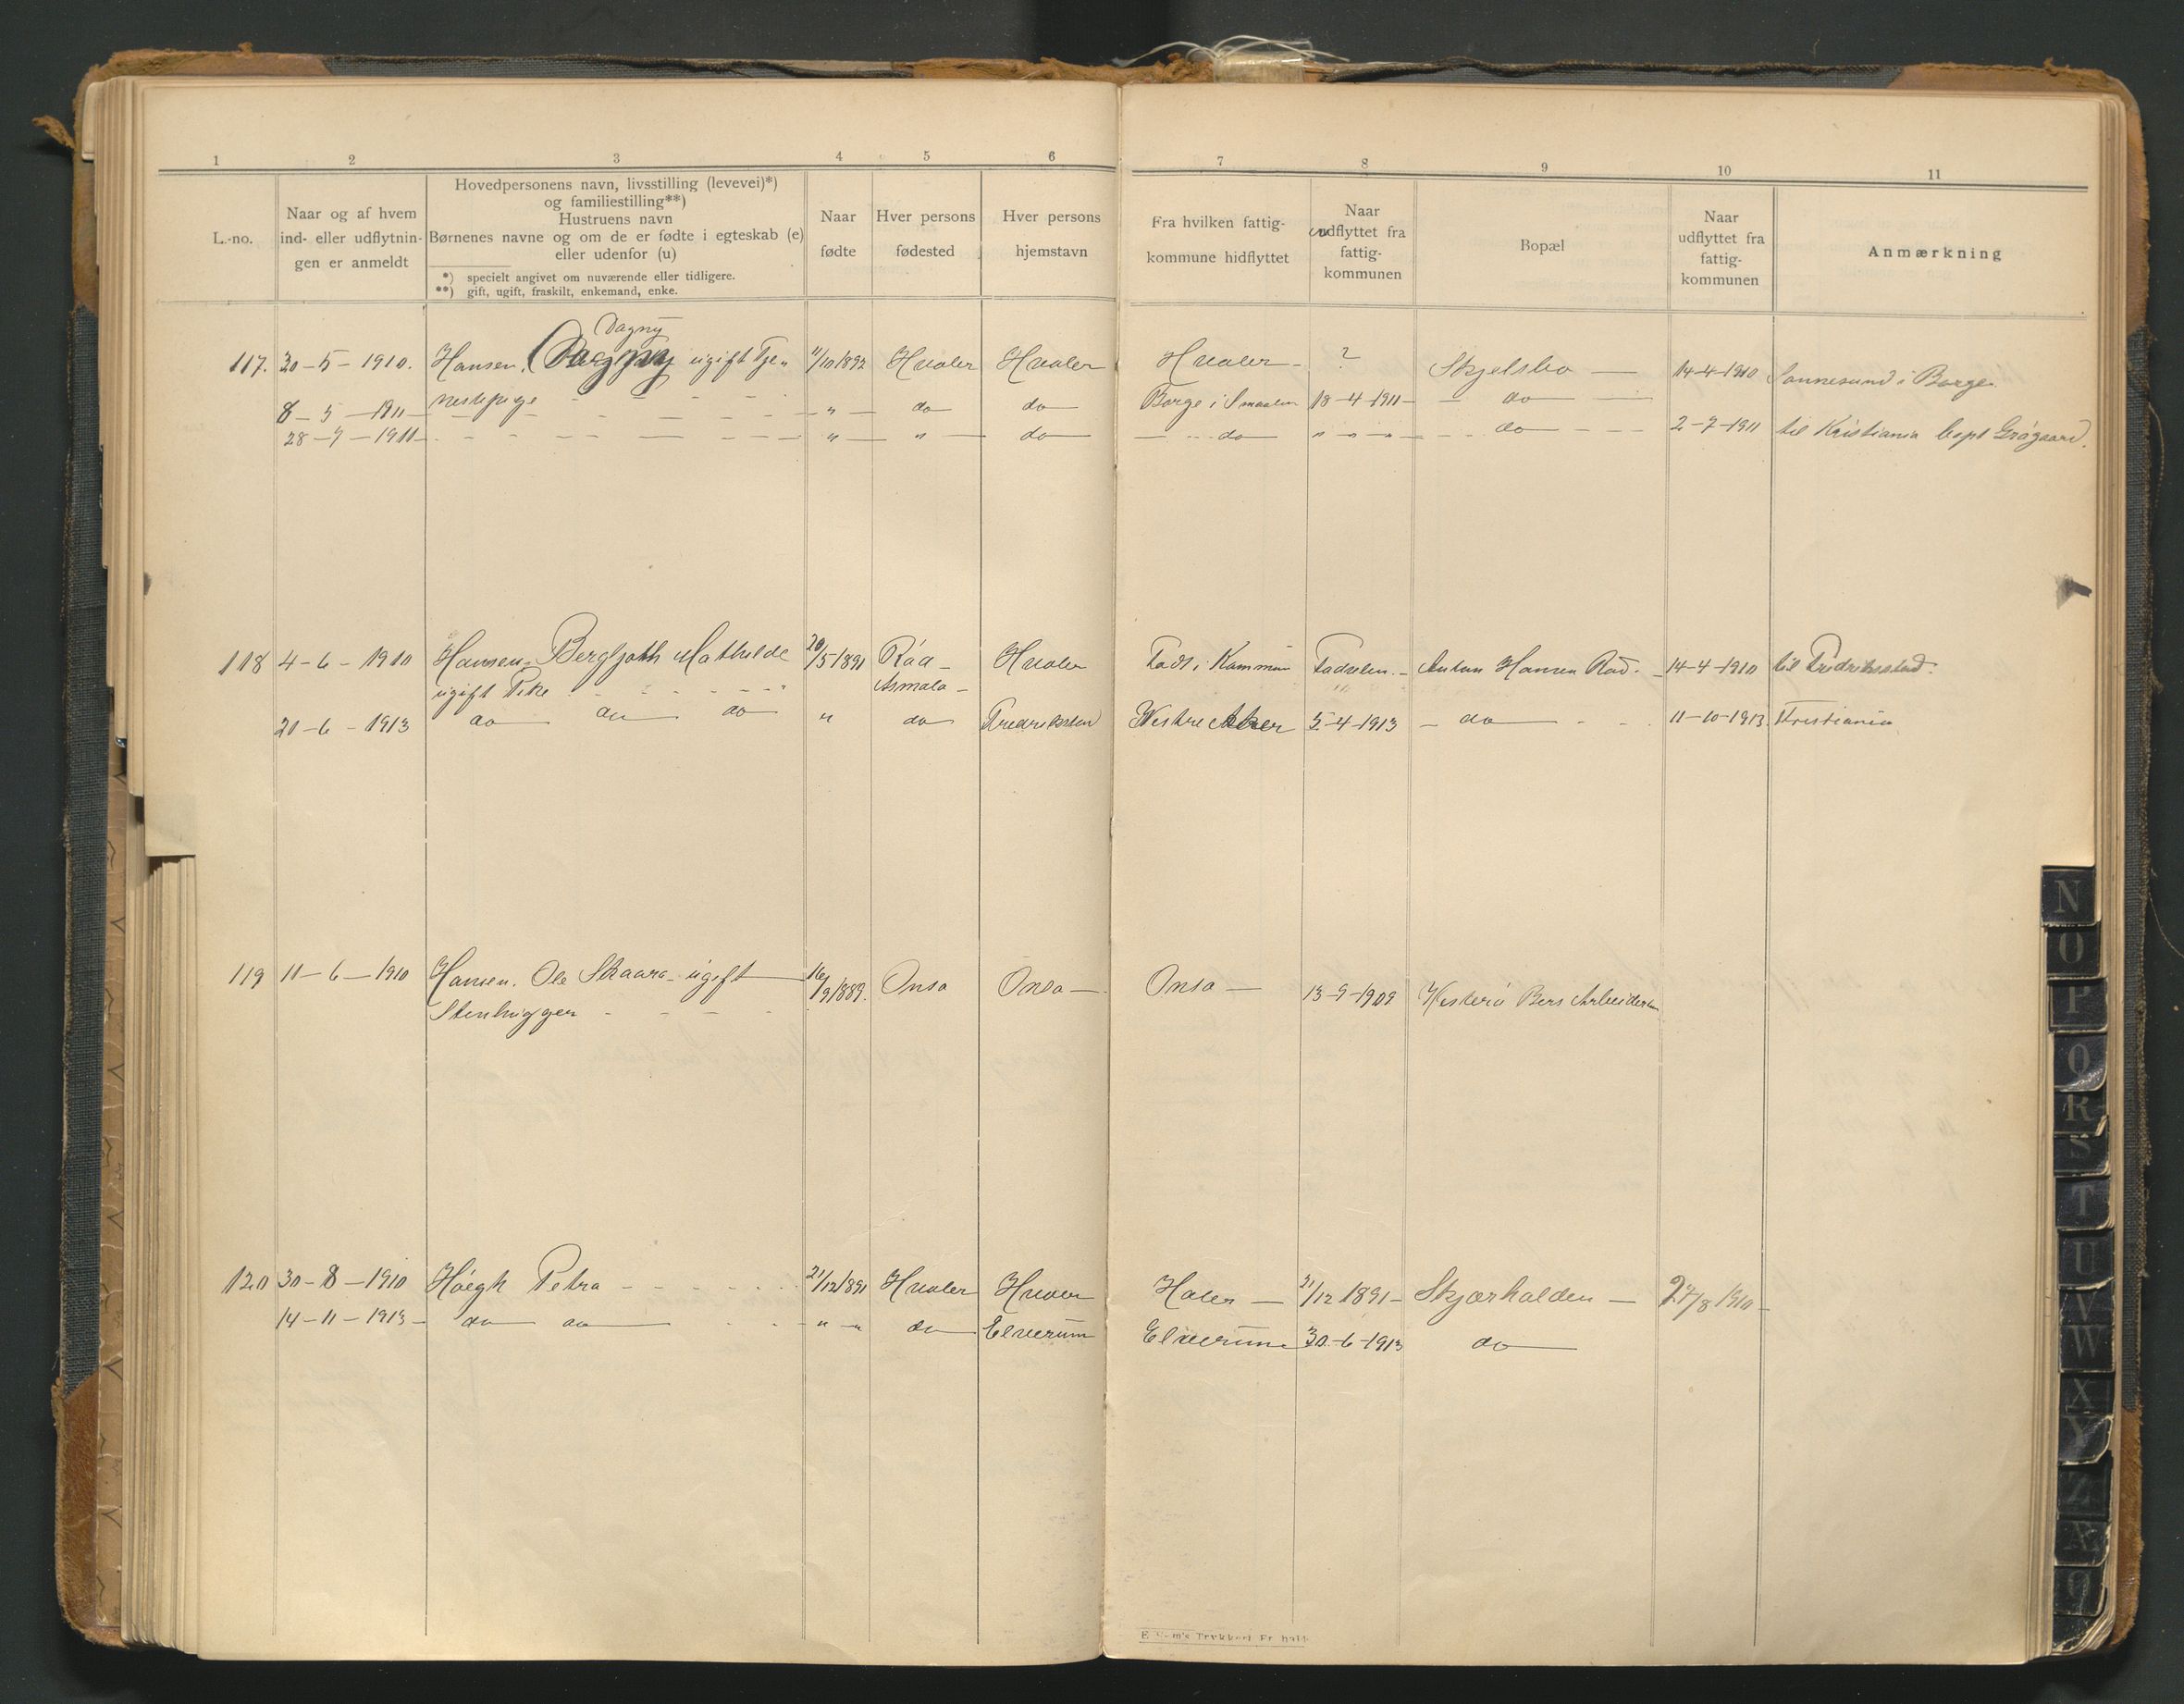 1 2 3 4 5 6 7 8 9 10 11
L.-no.
Naar og af hvem
ind- eller udflytnin-
gen er anmeldt
Hovedpersonens navn, livsstilling (levevei)*)
og familiestilling**)
Hustruens navn
Børnenes navne og om de er fødte i egteskab (e)
eller udenfor (u)
*) specielt angivet om nuværende eller tidligere.
**) gift, ugift, fraskilt, enkemand, enke.
Naar
fødte
Hver persons
fødested
Hver persons
hjemstavn
Fra hvilken fattig-
kommune hidflyttet
Naar
udflyttet fra
fattig-
kommunen
Bopæl
Naar
udflyttet fra
fattig-
kommunen
Anmærkning
Dagny
117. 30-5-1910. Hansen, Dagny ugift Tje- 11/10 1892 Hvaler Hvaler Hvaler - ? Skjelsbo — 14-4-1910 Sannesund i Borge
8-5-1911 nestepige - - - " - do do Borge i Smaalen 18-4-1911 - do
28-7-1911 - - - " - " - do - do " " " - do - - 2-7-1911 til Kristiania Grøgaard.
118 4-6-1910 Hansen, Bergljoth Mathilde 20/5 1891 Råd - Hvaler Føds. Kommun Fødselen. - Anton Hansen Rød. - 14-4-1910 til Fredriksstad.
ugift Pike - - - Asmalø -
20-6-1913 do do do " do Fredrikstad Vestre Aker 5-4-1913 - do - - 11-10-1913 Kristiania
119 11-6-1910 Hansen. Ole Skaara - ugift 16/9 1889. Onsø Onsø — Onsø — 13-9-1909 Vesterø
Stenhugger - - -
120 30-8-1910 Höegh Petra - - - 21/12 1891 Hvaler Hvaler Hvaler — 21/12 1891 - Skjærhalden — 24/8 1910 -
14-11-1913 - do do - - " " do Elverum Elverum 30-6-1913 do
N
O
P
Q
R
S
T
U
V
W
X
Y
Z
Æ
Ø